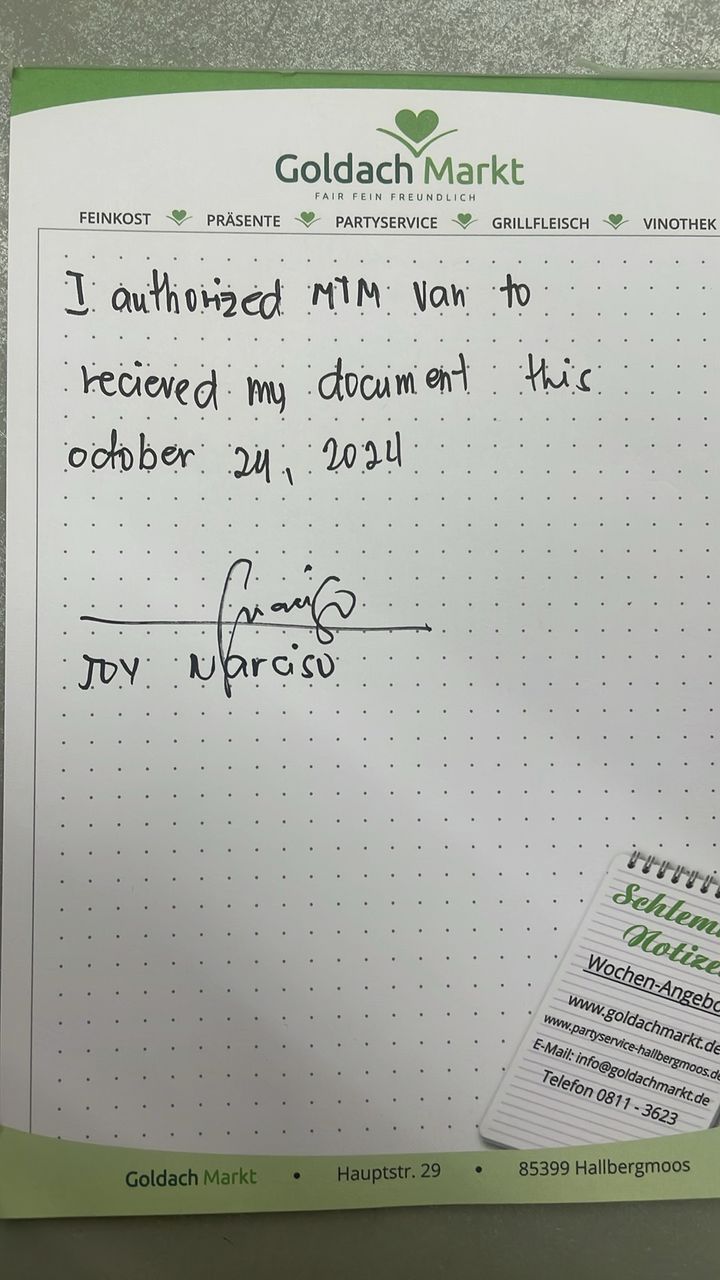 Goldach Markt
FAIR FEIN FREUNDLICH
FEINKOST PRÄSENTE PARTYSERVICE GRILLFLEISCH VINOTHEK
I authorized MTM Van to
recieved my document this
october 24, 2024
Joy Narciso
Schlem
Notize
Wochen-Angebo
www.goldachmarkt.de
www.partyservice-hallbergmoos.de
E-Mail: info@goldachmarkt.de
Telefon 0811 - 3623
Goldach Markt • Hauptstr. 29 • 85399 Hallbergmoos